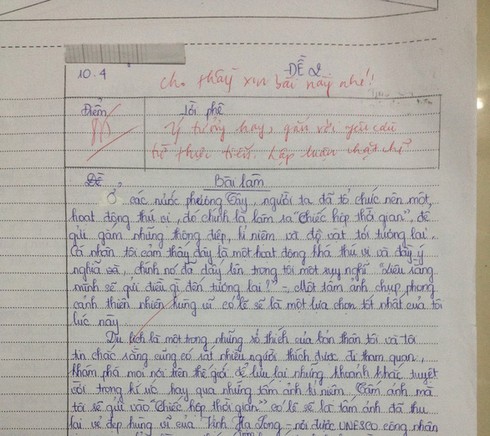 10.4
ĐỀ 2
cho thầy xin bài này nhé!
Điểm
Lời phê
Ý tưởng hay, gắn với yêu cầu
từ thực tiễn. Lập luận chặt chẽ
Đề 2
Bài làm
Ở các nước phương Tây, người ta đã tổ chức nên một
hoạt động thú vị, đó chính là làm ra "Chiếc hộp thời gian", để
gửi gắm những thông điệp, kỉ niệm và đồ vật tới tương lai.
Cá nhân tôi cảm thấy đây là một hoạt động khá thú vị và đầy ý
nghĩa và, chính nó đã dấy lên trong tôi một suy nghĩ "Liệu rằng
mình sẽ gửi điều gì đến tương lai?" - Một tấm ảnh chụp phong
cảnh thiên nhiên hùng vĩ có lẽ sẽ là một lựa chọn tốt nhất của tôi
lúc này
Du lịch là một trong những sở thích của bản thân tôi và tôi
tin chắc rằng cũng có rất nhiều người thích được đi tham quan,
khám phá mọi nơi trên thế giới, để lưu lại những khoảnh khắc tuyệt
vời trong kí ức hay qua những tấm ảnh kỉ niệm. Tấm ảnh mà
tôi sẽ gửi vào "Chiếc hộp thời gian" có lẽ sẽ là tấm ảnh đã thu
lại vẻ đẹp hùng vĩ của Vịnh Hạ Long - nơi được UNESCO công nhận